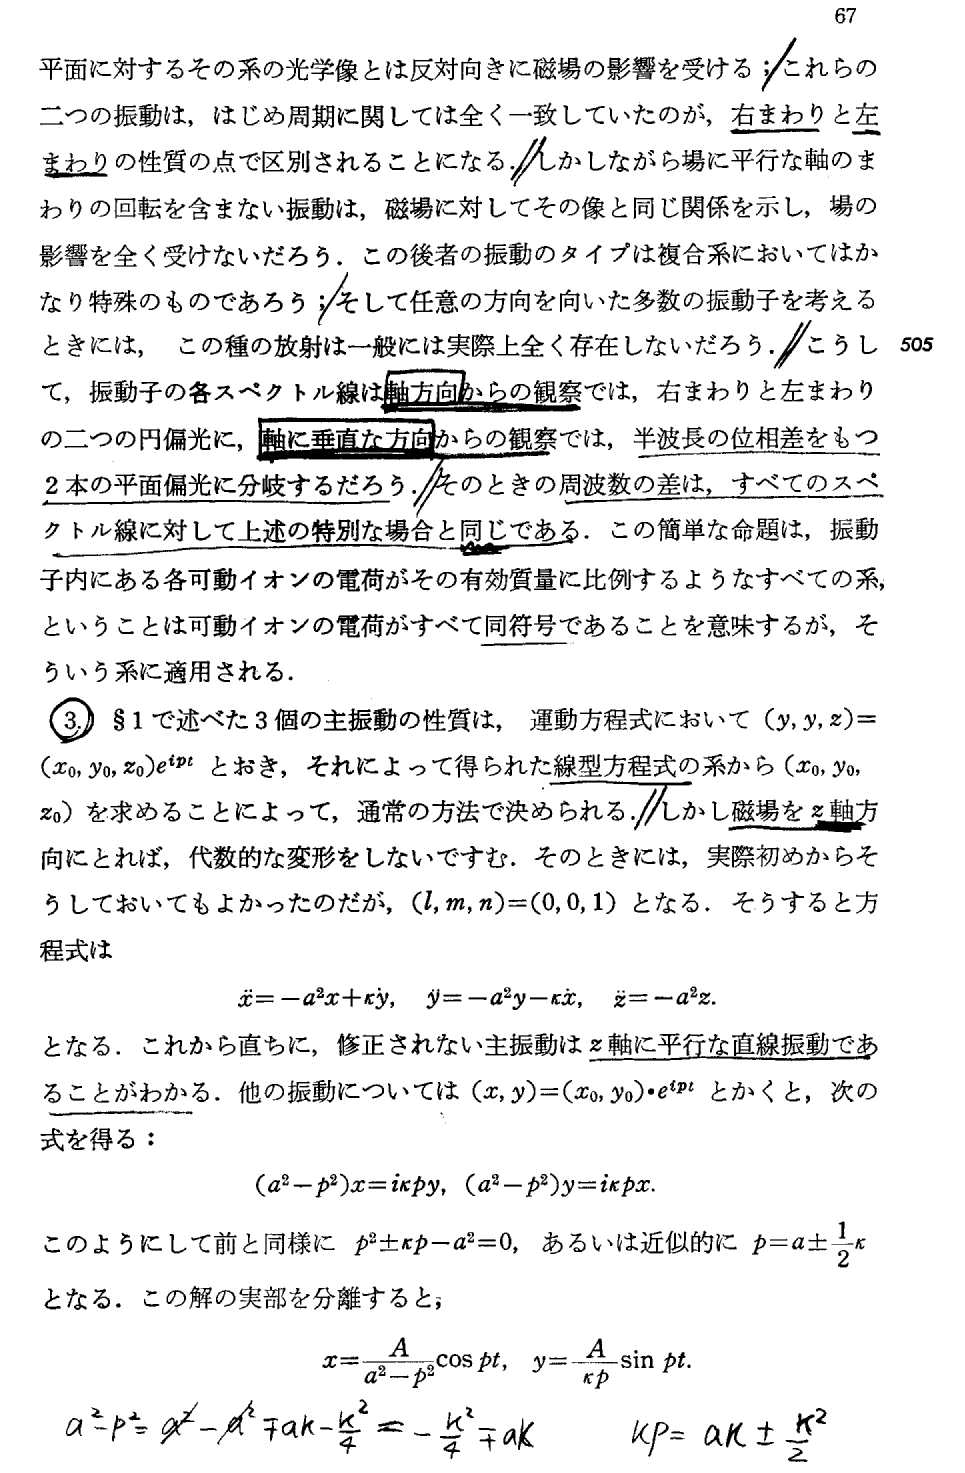 67
平面に対するその系の光学像とは反対向きに磁場の影響を受ける；これらの
二つの振動は，はじめ周期に関しては全く一致していたのが，右まわりと左
まわりの性質の点で区別されることになる．しかしながら場に平行な軸のま
わりの回転を含まない振動は，磁場に対してその像と同じ関係を示し，場の
影響を全く受けないだろう．この後者の振動のタイプは複合系においてはか
なり特殊のものであろう；そして任意の方向を向いた多数の振動子を考える
ときには，この種の放射は一般には実際上全く存在しないだろう．こうし 505
て，振動子の各スペクトル線は軸方向からの観察では，右まわりと左まわり
の二つの円偏光に，軸に垂直な方向からの観察では，半波長の位相差をもつ
2本の平面偏光に分岐するだろう．そのときの周波数の差は，すべてのスペ
クトル線に対して上述の特別な場合と同じである．この簡単な命題は，振動
子内にある各可動イオンの電荷がその有効質量に比例するようなすべての系，
ということは可動イオンの電荷がすべて同符号であることを意味するが，そ
ういう系に適用される．
3. §1で述べた3個の主振動の性質は，運動方程式において (y, y, z)=
(x₀, y₀, z₀)eⁱᵖᵗ とおき，それによって得られた線型方程式の系から (x₀, y₀,
z₀) を求めることによって，通常の方法で決められる．しかし磁場をz軸方
向にとれば，代数的な変形をしないですむ．そのときには，実際初めからそ
うしておいてもよかったのだが，(l, m, n)=(0, 0, 1) となる．そうすると方
程式は
ẍ=−a²x+κẏ, ÿ=−a²y−κẋ, z̈=−a²z.
となる．これから直ちに，修正されない主振動はz軸に平行な直線振動であ
ることがわかる．他の振動については (x, y)=(x₀, y₀)•eⁱᵖᵗ とかくと，次の
式を得る：
(a²−p²)x=iκpy, (a²−p²)y=iκpx.
このようにして前と同様に p²±κp−a²=0, あるいは近似的に p=a±1/2κ
となる．この解の実部を分離すると，
x=A/(a²−p²) cos pt, y=A/κp sin pt.
a²−p²= a²−a²∓aκ−κ²/4 = −κ²/4∓aκ κp= aκ±κ²/2